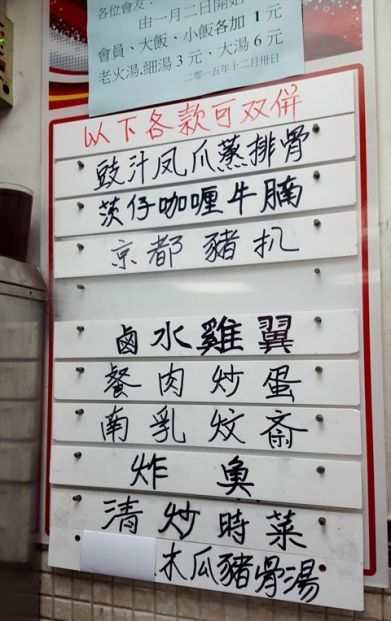 各位會友：
由一月二日開始
會員、大飯、小飯各加 1 元
老火湯,細湯 3 元、大湯 6 元
二零一五年十二月卅日
以下各款可双併
豉汁凤爪蒸排骨
茨仔咖喱牛腩
京都豬扒
鹵水雞翼
餐肉炒蛋
南乳炆斎
炸魚
清炒時菜
木瓜豬骨湯